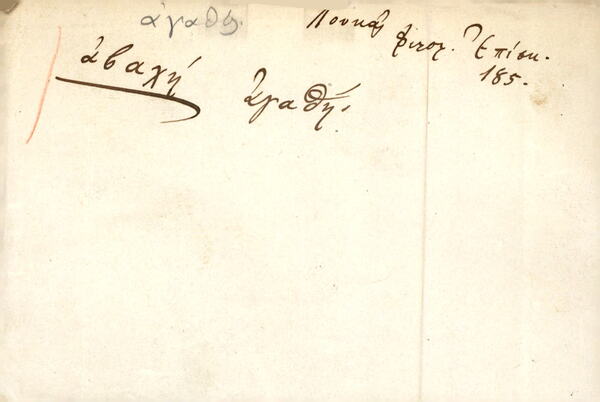 ἀγαθή.
Λουκᾶ φιλολ. Ἐπίσκ.
185.
ἀβαχή ἀγαθή.